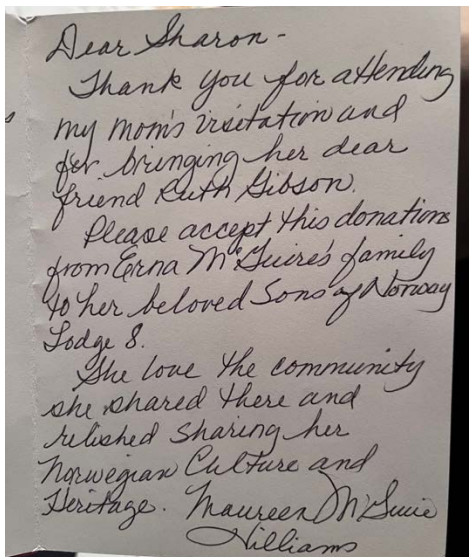 Dear Sharon -
Thank you for attending
my mom's visitation and
for bringing her dear
friend Ruth Gibson.
Please accept this donation
from Erna McGuire's family
to her beloved Sons of Norway
Lodge 8.
She love the community
she shared there and
relished sharing her
Norwegian Culture and
Heritage. Maureen McGuire
Williams